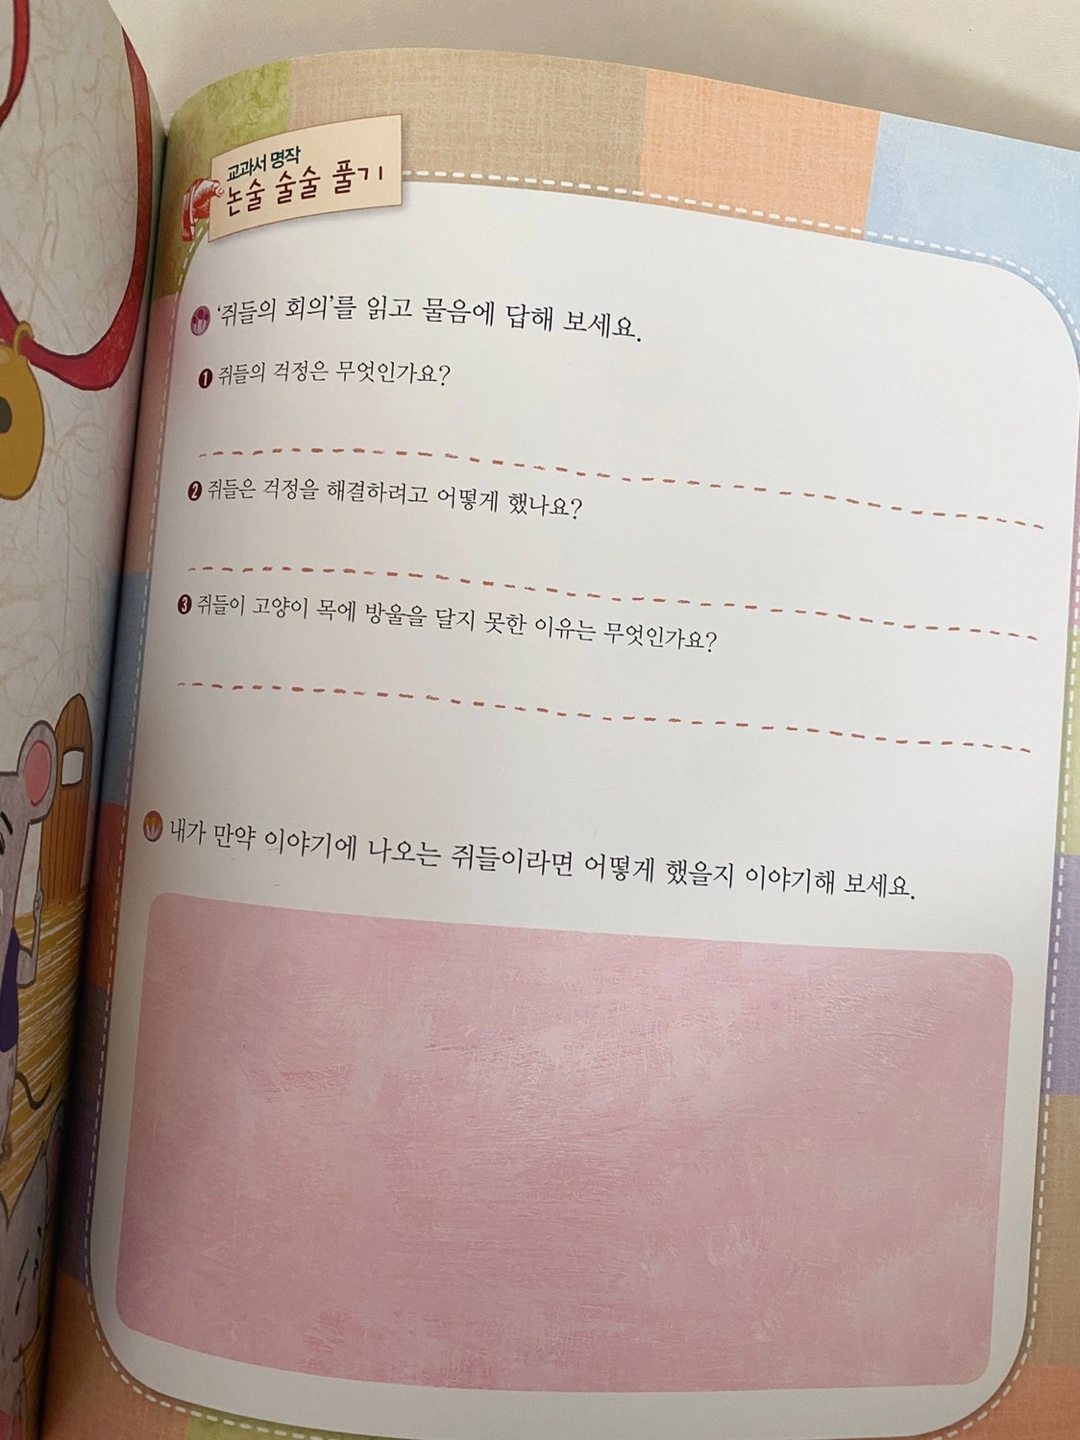 교과서 명작
논술 술술 풀기
'쥐들의 회의'를 읽고 물음에 답해 보세요.
1 쥐들의 걱정은 무엇인가요?
2 쥐들은 걱정을 해결하려고 어떻게 했나요?
3 쥐들이 고양이 목에 방울을 달지 못한 이유는 무엇인가요?
내가 만약 이야기에 나오는 쥐들이라면 어떻게 했을지 이야기해 보세요.